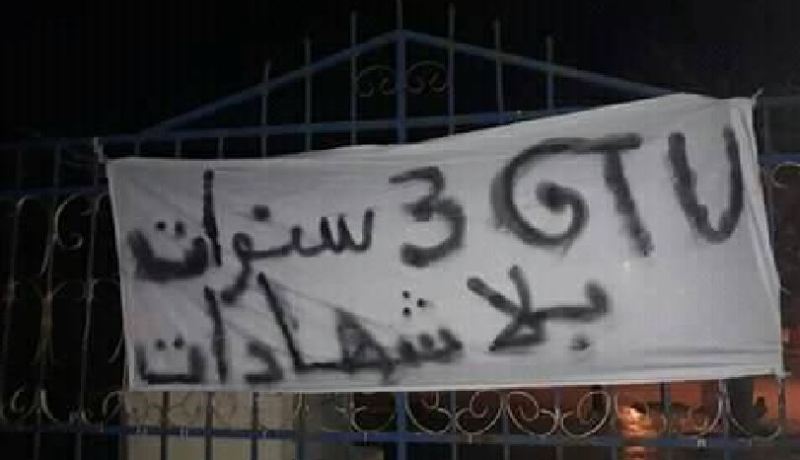 GTU 3 سنوات
بلا شهادات